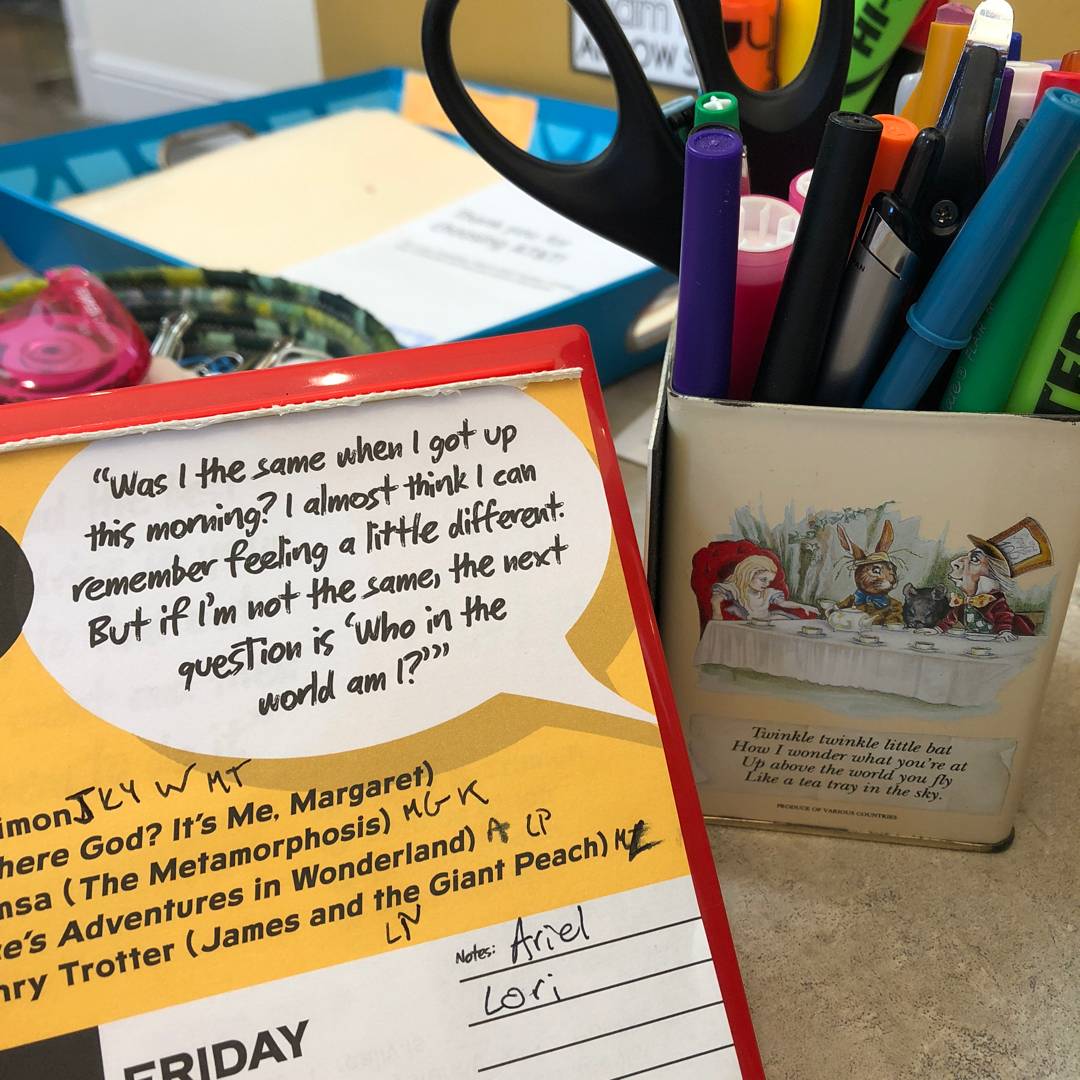 HI-
aim
Thank you for
choosing
"Was I the same when I got up
this morning? I almost think I can
remember feeling a little different.
But if I'm not the same, the next
question is 'Who in the
world am I?'"
JKY W MT
imon
here God? It's Me, Margaret)
nsa (The Metamorphosis) MG K
e's Adventures in Wonderland) A LP
nry Trotter (James and the Giant Peach)
LN
Notes: Ariel
Lori
FRIDAY
Twinkle twinkle little bat
How I wonder what you're at
Up above the world you fly
Like a tea tray in the sky.
PRODUCE OF VARIOUS COUNTRIES